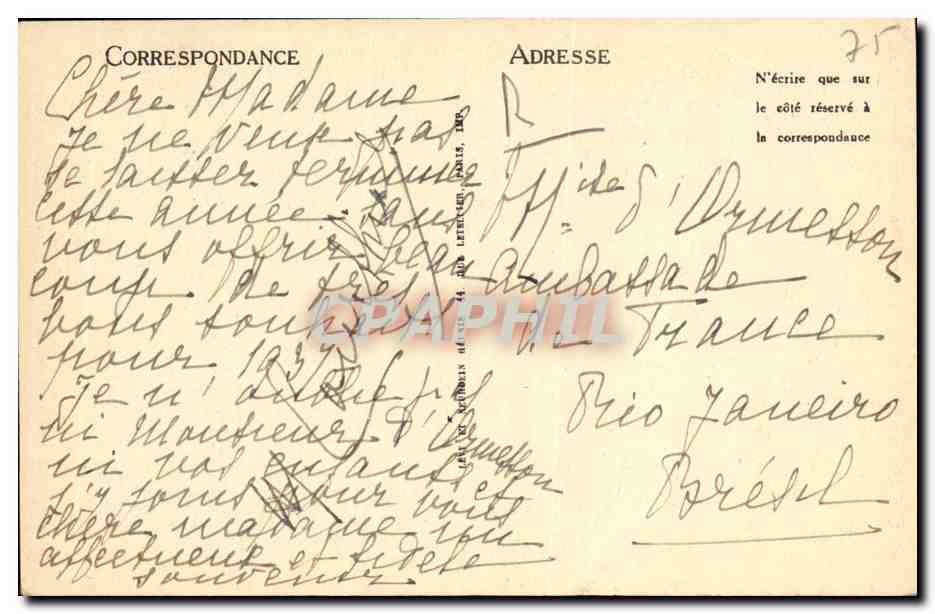 CORRESPONDANCE
Chère Madame
je ne veux pas
me laisser terminer
cette année sans
vous offrir beau
coup de très
bons souhaits
pour 1937
Je n'oublie pas
ni Monsieur d'Ormesson
ni vos enfants
j'y joins pour vous
chère madame mon
affectueux et fidèle
souvenir
ADRESSE
75
N'écrire que sur
le côté réservé à
la correspondance
R
Mise d'Ormesson
Ambassade
de France
Rio Janeiro
Brésil
LÉVY ET NEURDEIN RÉUNIS 44 RUE LETELLIER, PARIS, IMP.
CPAPHIL